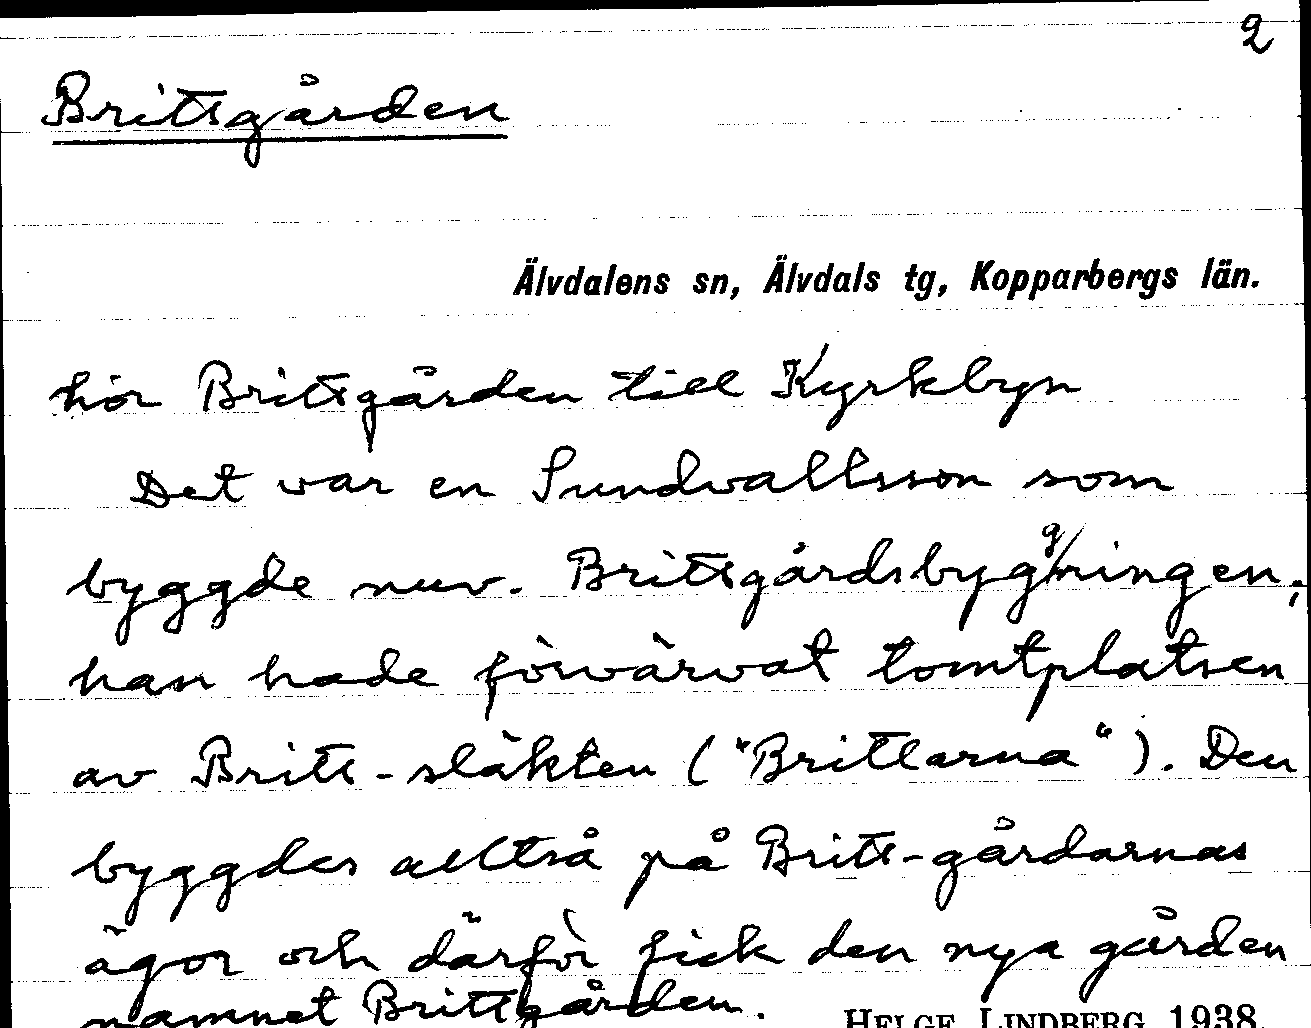 2
Brittsgården
Älvdalens sn, Älvdals tg, Kopparbergs län.
hör Brittsgården till Kyrkbyn
Det var en Sundvallsson som
byggde nuv. Brittsgårdsbyggningen;
han hade förvärvat tomtplatsen
av Britt-släkten ("Brittarna"). Den
byggdes alltså på Britt-gårdarnas
ägor och därför fick den nya gården
namnet Brittgården.
HELGE LINDBERG 1938.